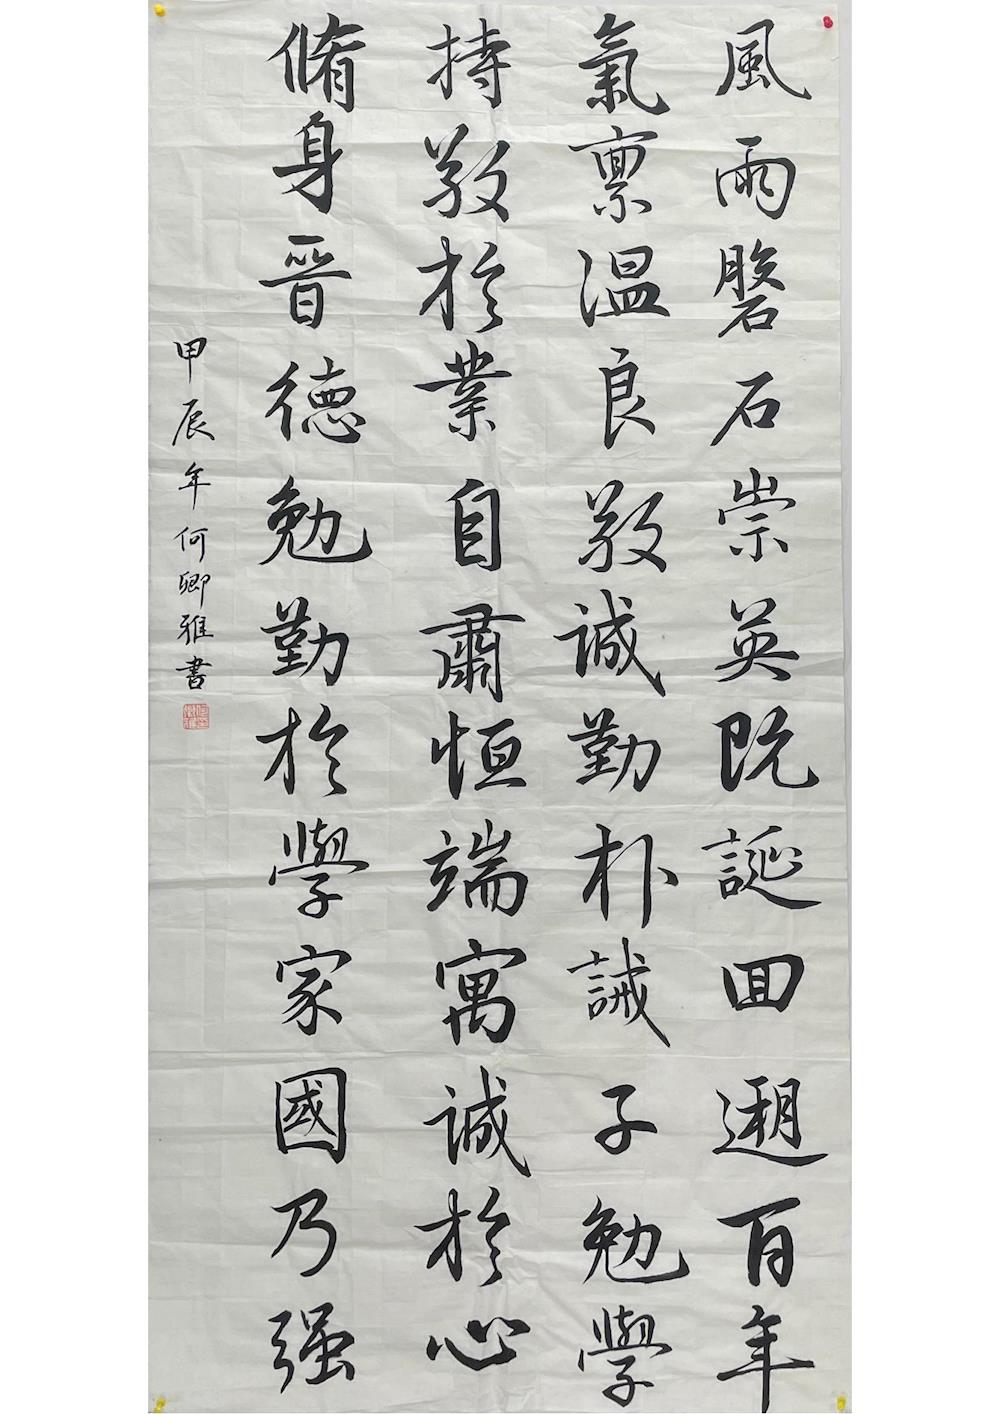 風雨磐石崇英既誕回遡百年
氣禀溫良敬誠勤朴誡子勉學
持敬於業自肅恒端寓誠於心
脩身晉德勉勤於學家國乃强
甲辰年何卿雅書